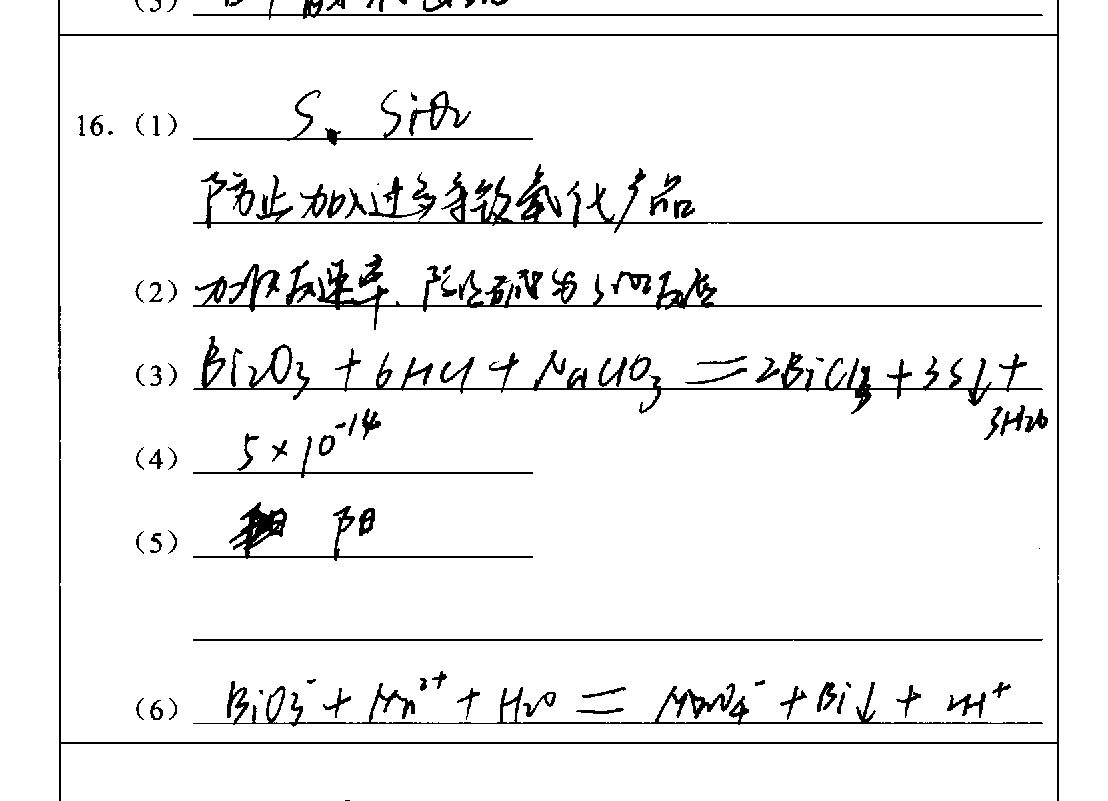 16.（1） S、SiO₂
防止加入过多导致氧化产品
（2）加快反应速率、
（3）Bi₂O₃ + 6HCl + NaClO₃ = 2BiCl₃ + 3S↓ +
3H₂O
（4） 5×10⁻¹⁴
（5） 阳
（6） BiO₃⁻ + Mn²⁺ + H₂O = MnO₄⁻ + Bi↓ + 2H⁺